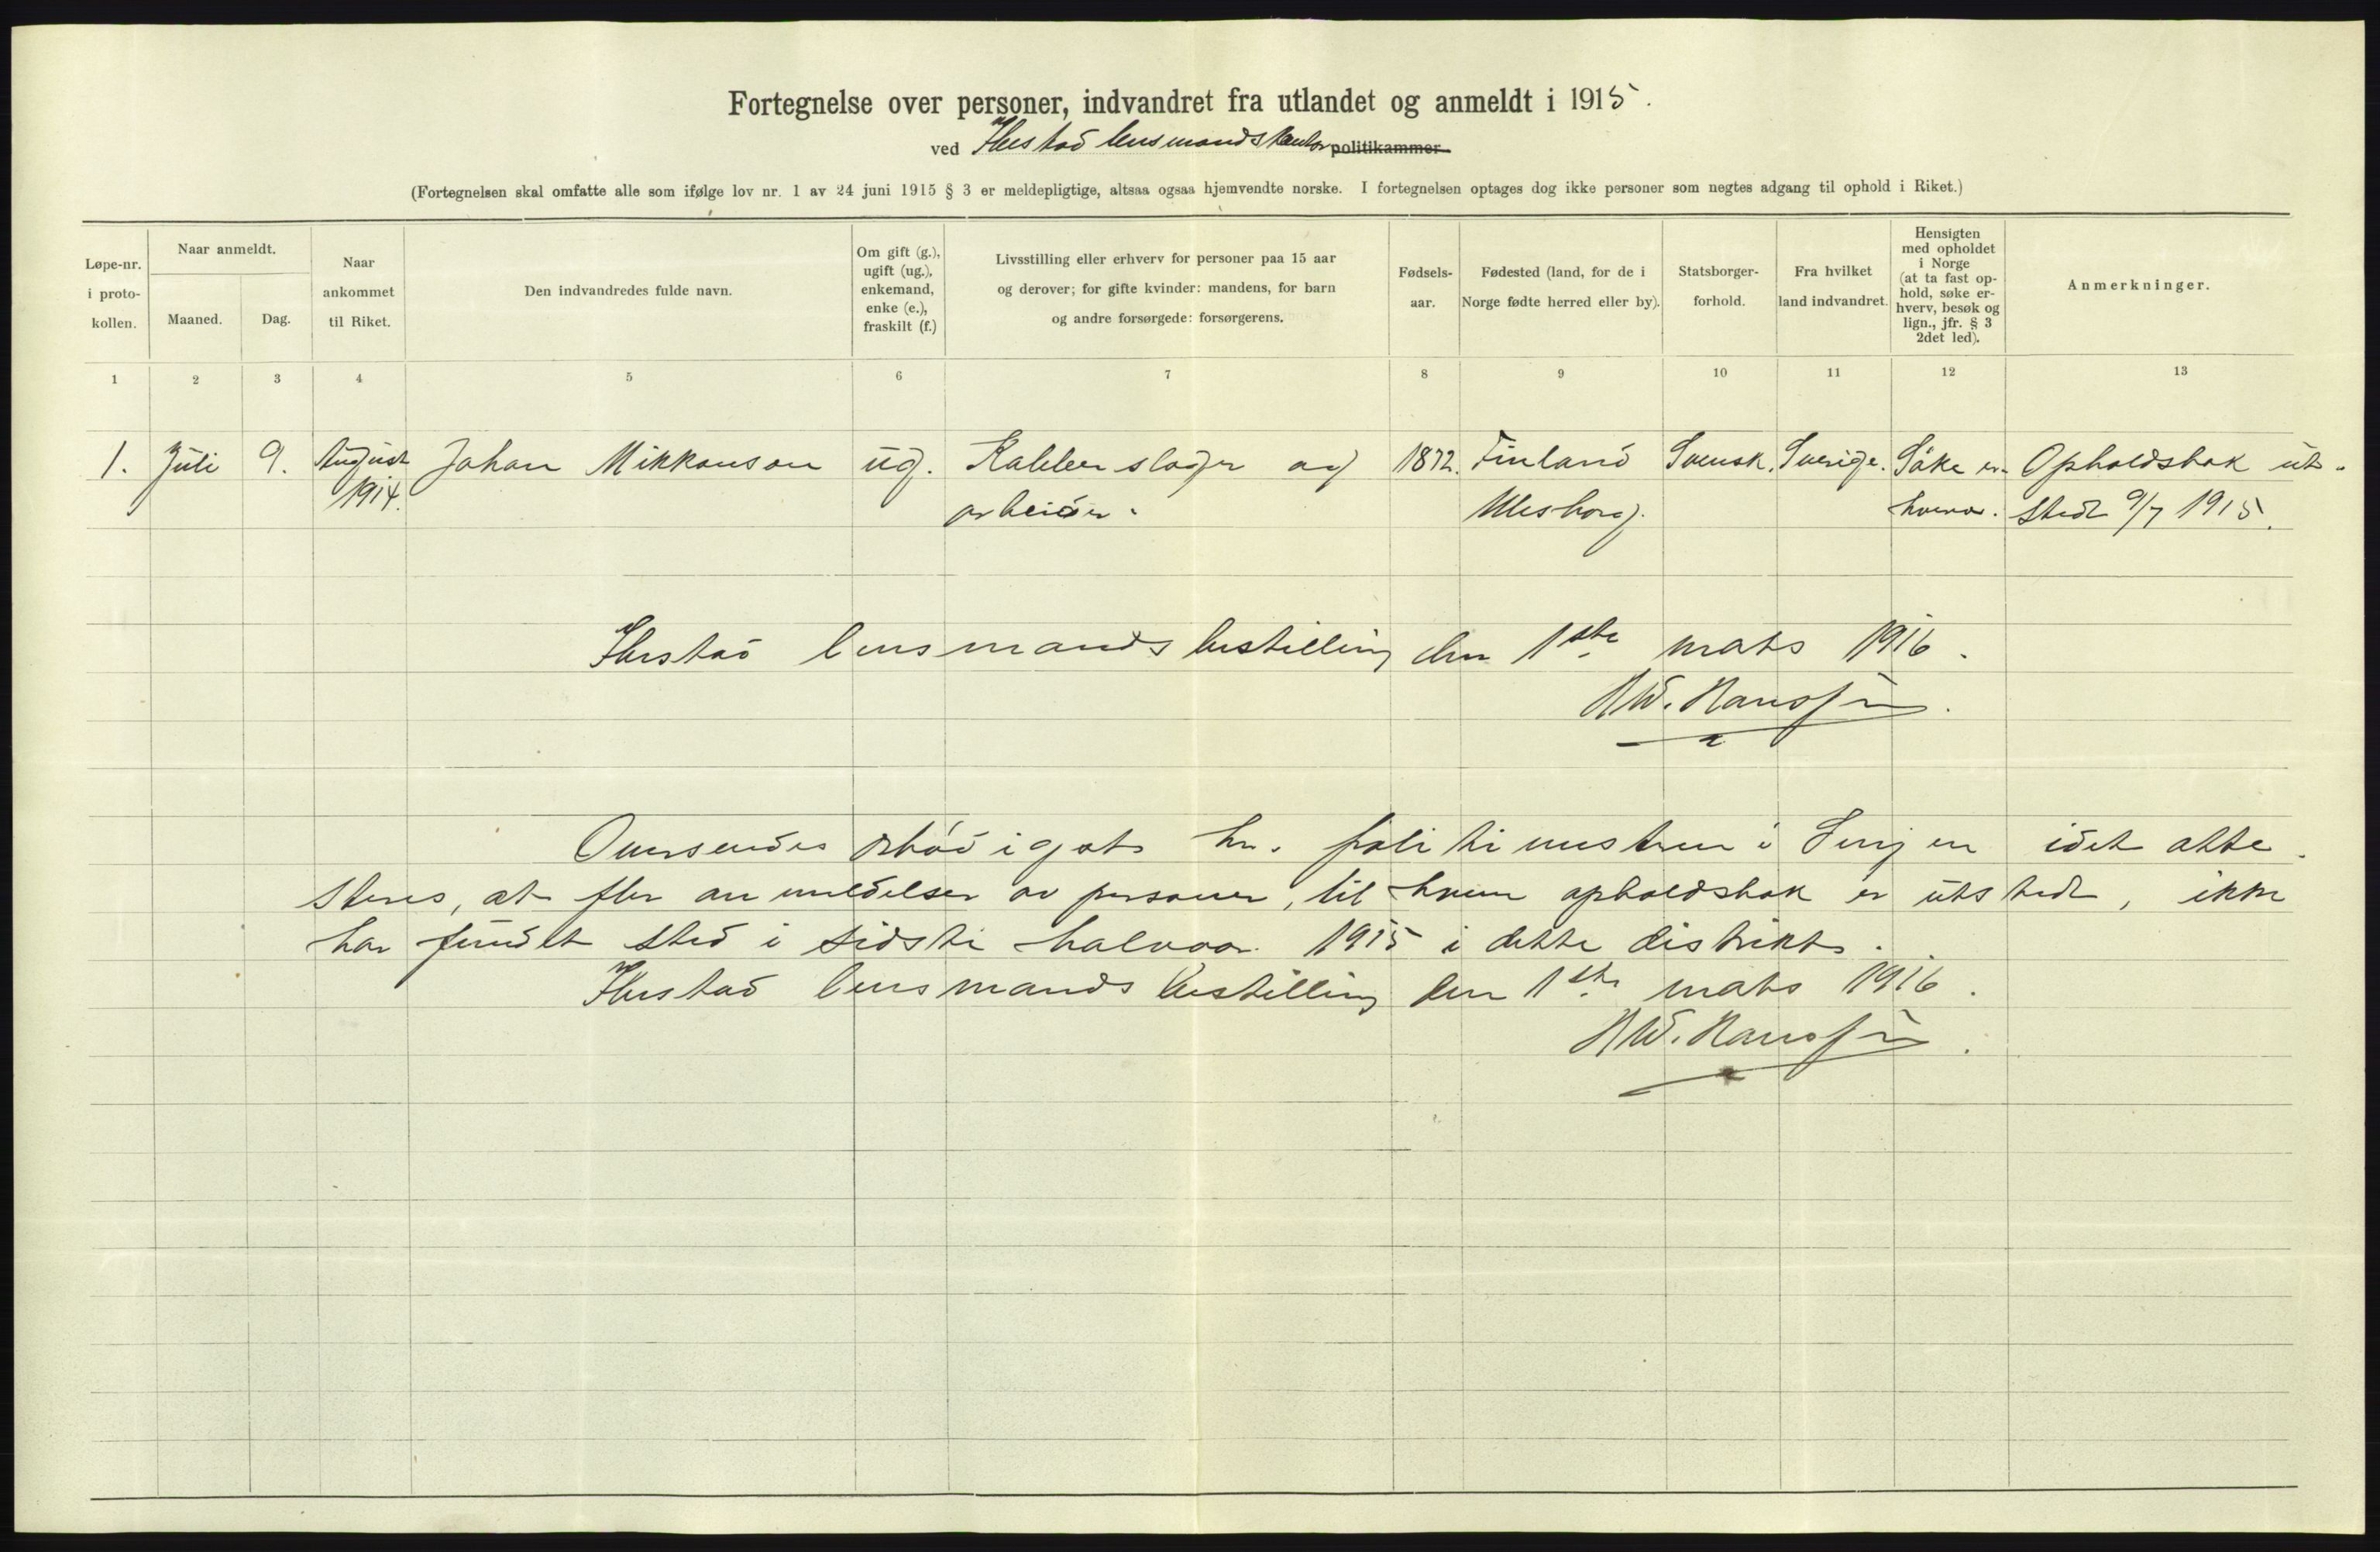 Fortegnelse over personer, indvandret fra utlandet og anmeldt i 1915.
ved lensmandskontor politikammer
(Fortegnelsen skal omfatte alle som ifølge lov nr. 1 av 24 juni 1915 § 3 er meldepligtige, altsaa ogsaa hjemvendte norske. I fortegnelsen optages dog ikke personer som negtes adgang til ophold i Riket.)
Løpe-nr.
i proto-
kollen.
Naar anmeldt.
Maaned.
Dag.
Naar
ankommet
til Riket.
Den indvandredes fulde navn.
Om gift (g.),
ugift (ug.),
enkemand,
enke (e.),
fraskilt (f.)
Livsstilling eller erhverv for personer paa 15 aar
og derover; for gifte kvinder: mandens, for barn
og andre forsørgede: forsørgerens.
Fødsels-
aar.
Fødested (land, for de i
Norge fødte herred eller by).
Statsborger-
forhold.
Fra hvilket
land indvandret.
Hensigten
med opholdet
i Norge
(at ta fast op-
hold, søke er-
hverv, besøk og
lign., jfr. § 3
2det led).
Anmerkninger.
1 2 3 4 5 6 7 8 9 10 11 12 13
1. Juli 9. August Johan Mikkonson ug. Kobberslager og 1872. Finland Svensk. Sverige. Søke er- Opholdsbok ut-
1914. arbeider. Uleaborg. hverv. stedt 9/7 1915.
lensmandsbestilling den 1ste mats 1916.
Hanssen.
Oversendes ærbødigst hr. politimesteren i Senjen idet atte-
steres, at fler anmeldelser av personer, til hvem opholdsbok er utstedt, ikke
har fundet sted i sidste halvaar 1915 i dette distrikt.
lensmandsbestilling den 1ste mats 1916.
Hanssen.